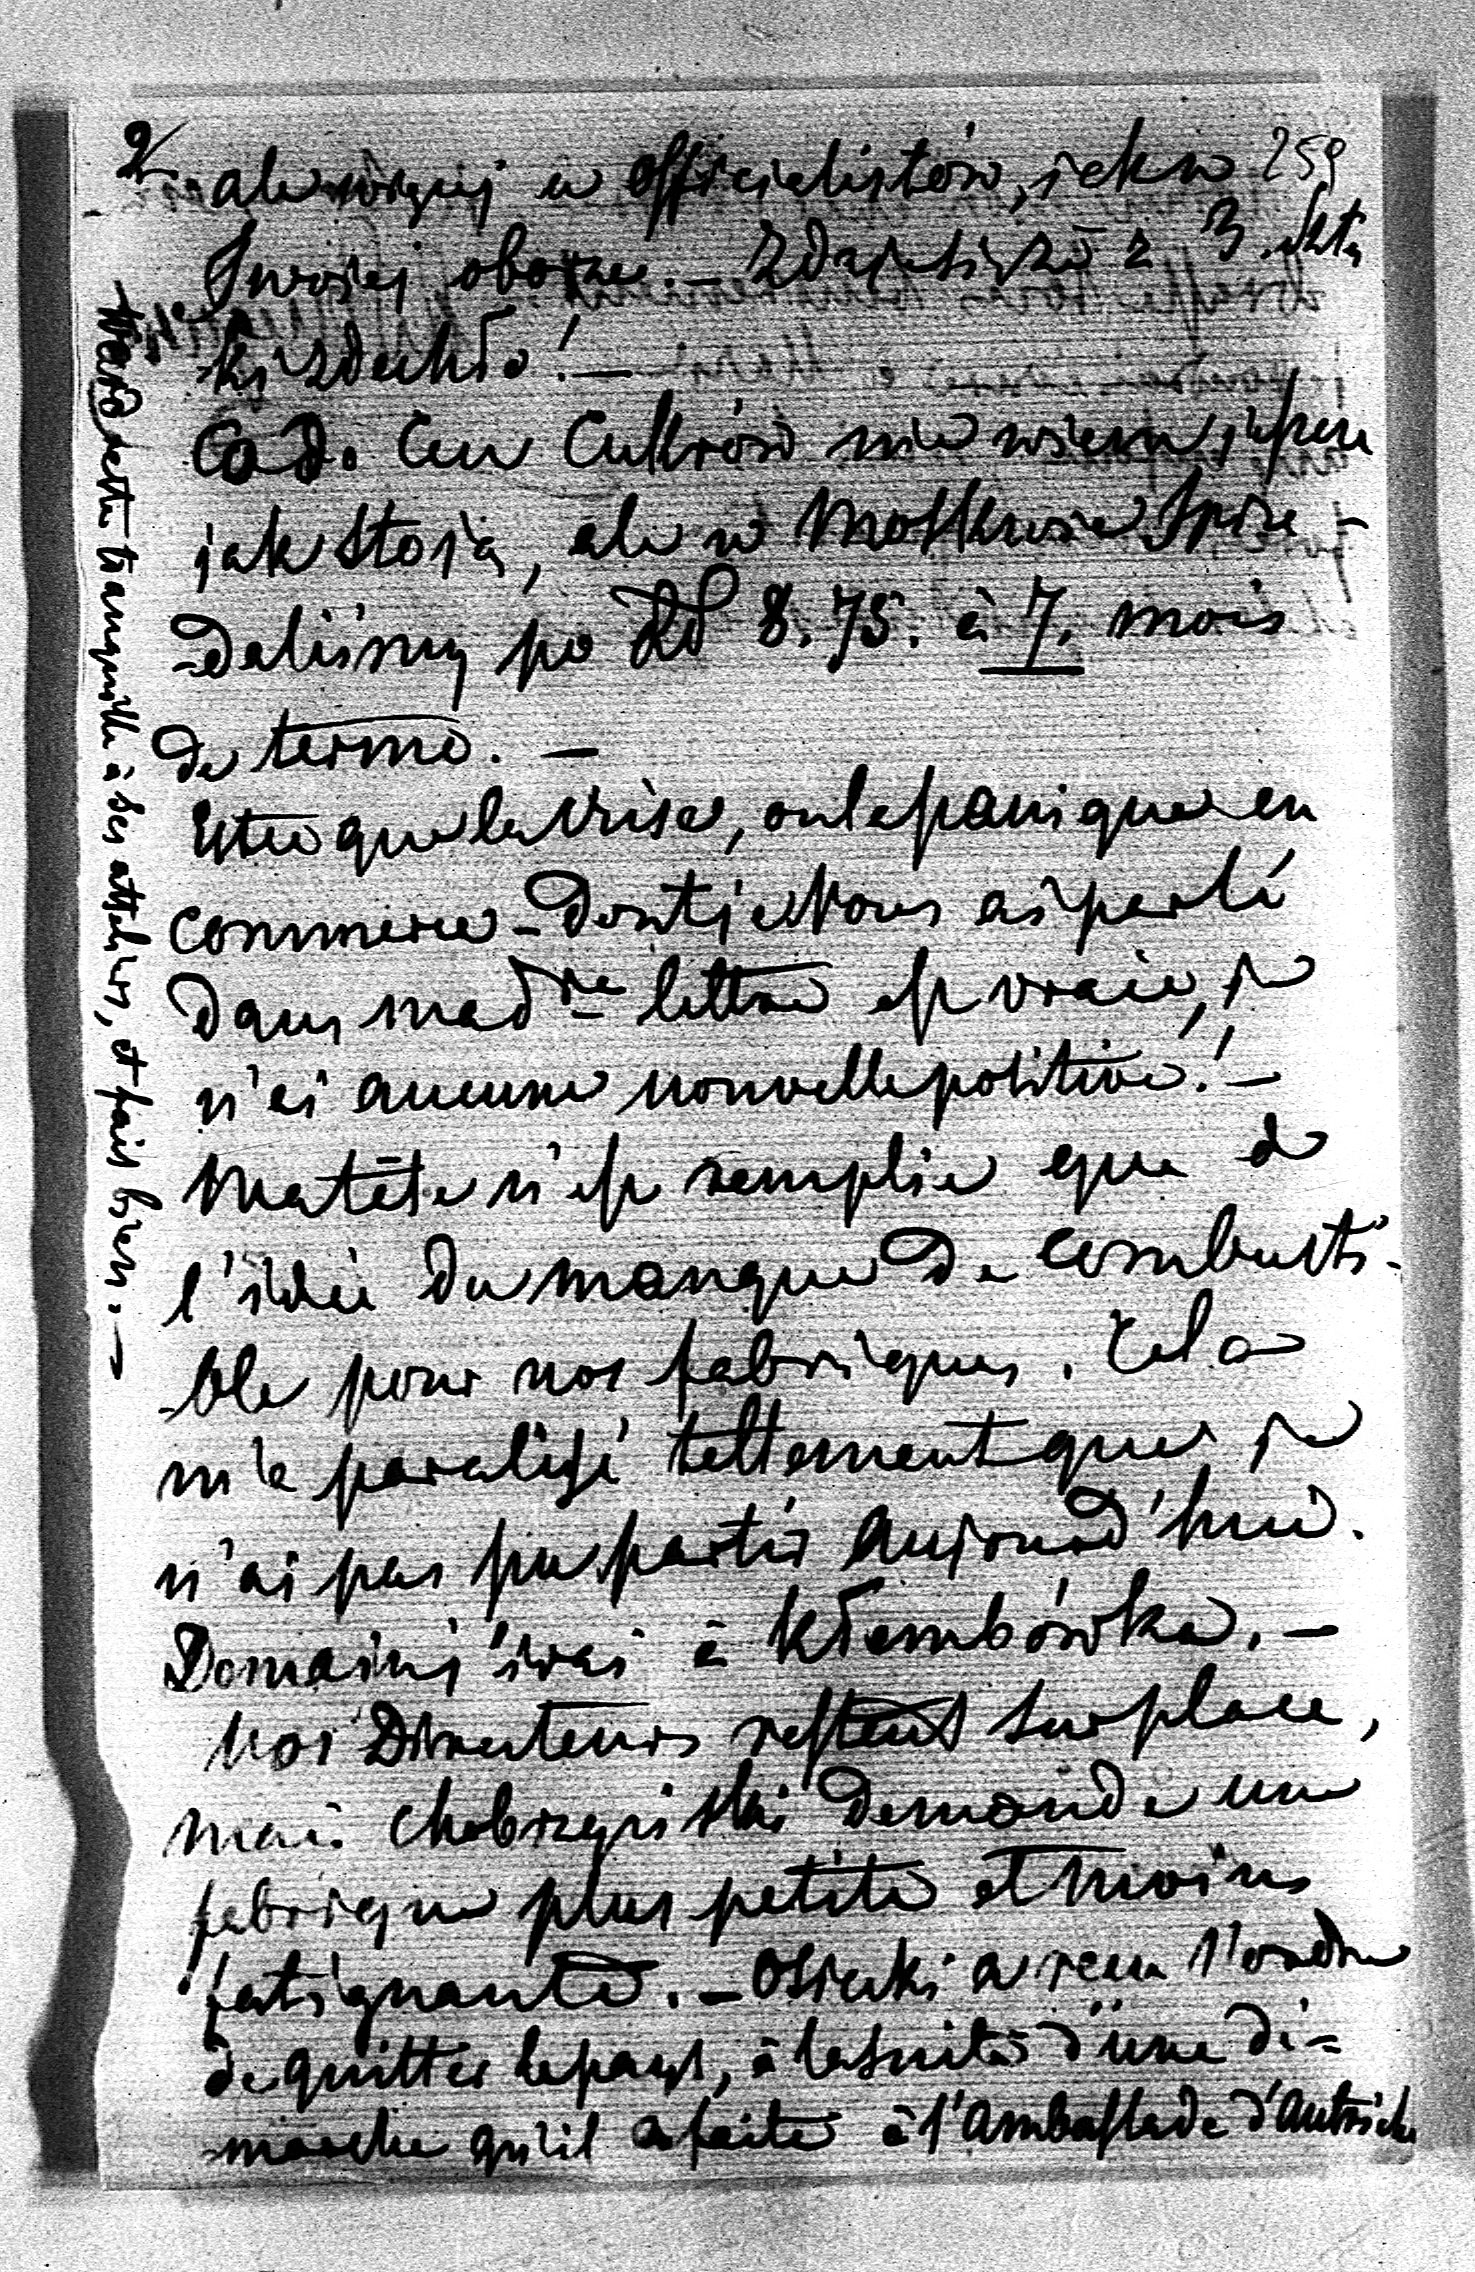 2 259
ale więcej u officialistów, jak w
Swojej oborze. — Zdaje się że z 3. sztu
ki zdechło! —
Co d. Cen Cukrów nie wiem, i'pine
jak stoją, ale w Moskwie Sprze-
daliśmy po Rb 8. 75. à 7. mois
de terme. —
Este que la Crise, ou le panique en
commerce — dont je Vous ai parlé
dans ma dre lettre est vraie, je
n'ai aucune nouvelle positive! —
Ma tête n'est remplie que d
l'idée du manque de combusti-
-ble pour nos fabriques. Cela
m'a paralisé tellement que je
n'ai pas pu partir aujourd'hui.
Demain j'irai à Kłembówka. —
Nos Directeurs restent sur place,
mais Chobrzyński demande une
fabrique plus petite et moins
fatignante. — Osiecki a reçu l'ordre
de quitter le pays, à la suite d'une dé-
marche qu'il a faite à l'Ambassade d'Autriche
reste tranquille à ses atteliers, et fait bien. —